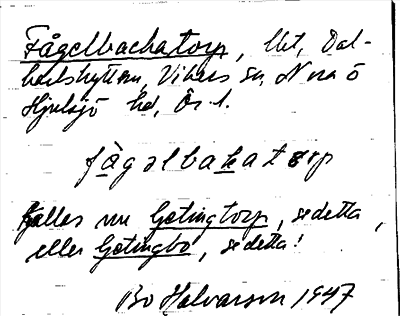 Fågelbachatorp, lht, Dal-
karlshyttan, Vikers sn, Nora o
Hjulsjö hd, Ör. l.
fågəlbakatorp
Kallas nu Getingtorp, se detta,
eller Getingbo, se detta!
Bo Halvarson 1947